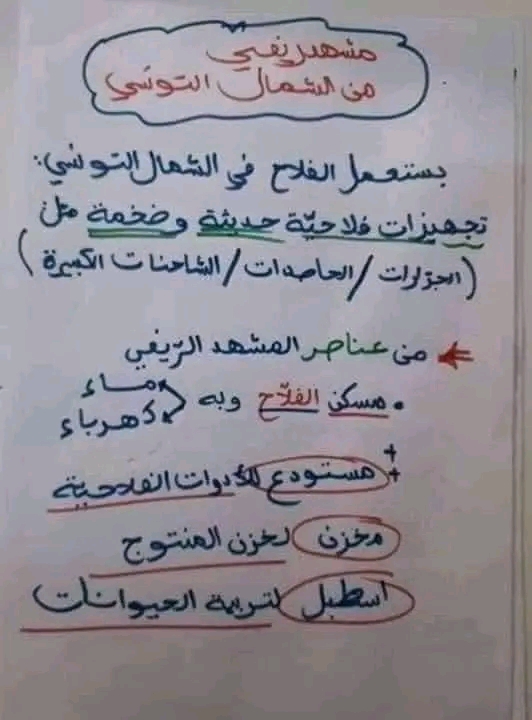 مشهد ريفي
من الشمال التونسي
يستعمل الفلاح في الشمال التونسي:
تجهيزات فلاحيّة حديثة وضخمة مثل
(الجرّارات / الحاصدات / الشاحنات الكبيرة)
من عناصر المشهد الرّيفي
• مسكن الفلاّح وبه ماء
كهرباء
+
+ مستودع للأدوات الفلاحية
مخزن لخزن المنتوج
اسطبل لتربية الحيوانات